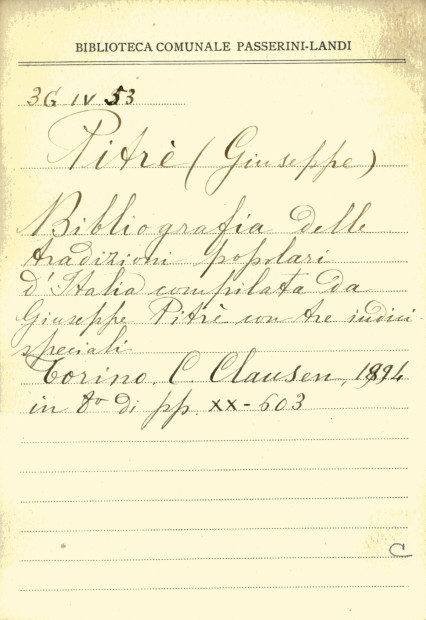 BIBLIOTECA COMUNALE PASSERINI-LANDI
3G IV 53
Pitrè (Giuseppe)
Bibliografia delle
tradizioni popolari
d'Italia compilata da
Giuseppe Pitrè con tre indici
speciali
Torino. C. Clausen, 1894
in 8º di pp. XX-603
C